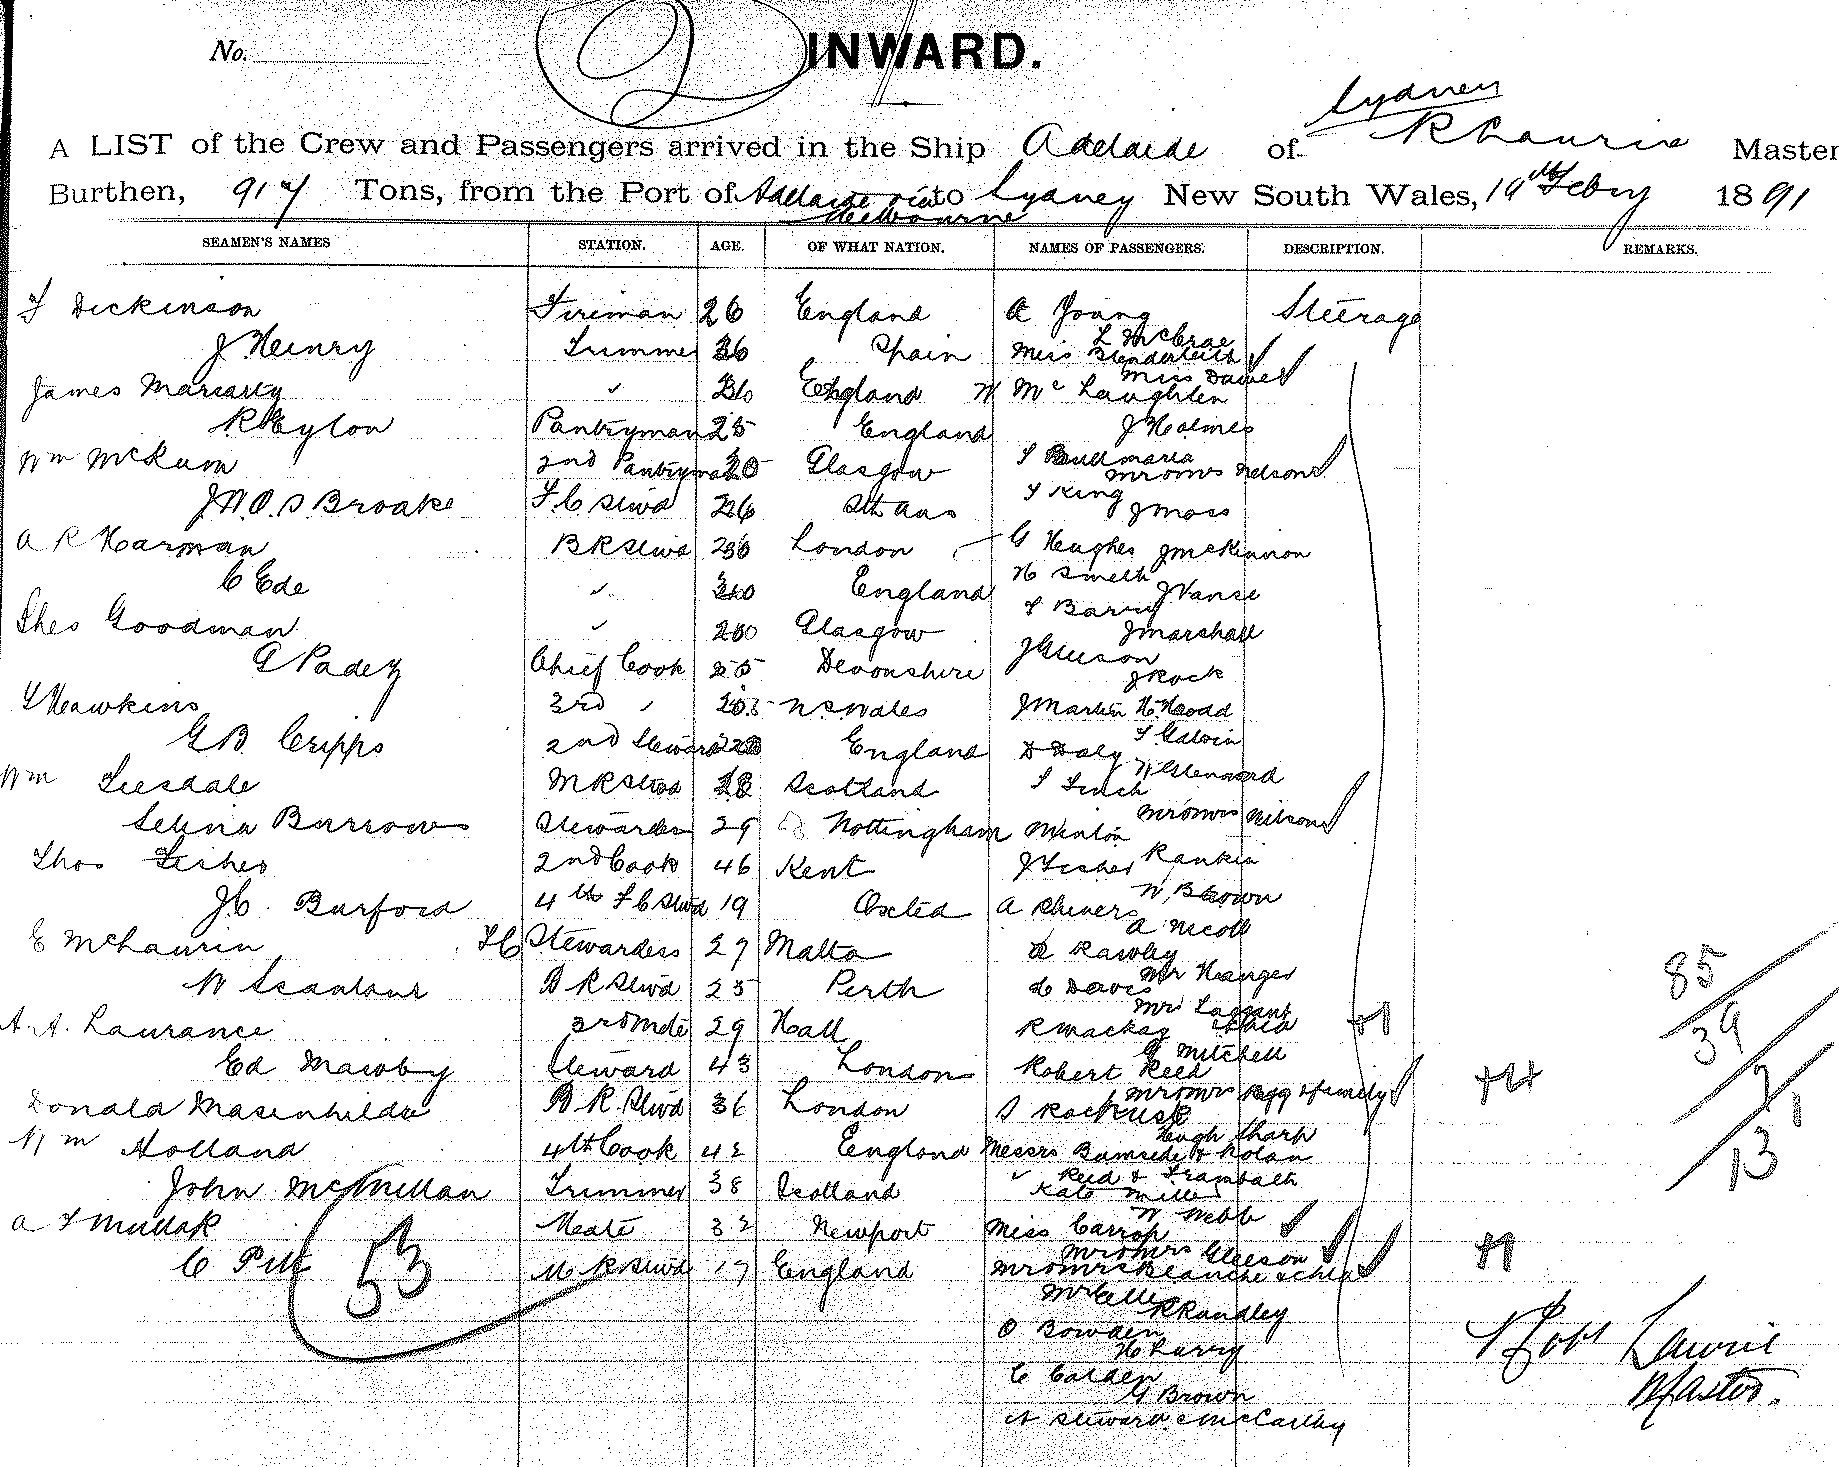 No.
INWARD.
Sydney
A LIST of the Crew and Passengers arrived in the Ship Adelaide of R Laurie Master
Burthen, 917 Tons, from the Port of Adelaide via Melbourne to Sydney New South Wales, 19th Febry 1891
SEAMEN'S NAMES STATION. AGE. OF WHAT NATION. NAMES OF PASSENGERS. DESCRIPTION. REMARKS.
T Dickinson Fireman 26 England A Young Steerage
L McCrae
J Henry Trimmer 36 Spain Miss Blenderleith
Miss Dawes
James Mariarty " England W McLaughlen
R Eylon Pantryman 25 England J Holmes
Wm McKum 2nd Pantryman 20 Glasgow
Mr & Mrs Nelson
T King
J N O S Broake F C Stwd 26 J Moss
A R Harman B R Stwd London G Hughes J McKinnon
H Smeth
C Ede " England J Vanse
T Barry
Thos Goodman " Glasgow J Marshall
J Gleeson
G Padey Chief Cook Devonshire J Rock
T Hawkins 3rd " N S Wales J Martin H Hoodd
T Galvin
G B Cripps 2nd Steward England D Daly
Wm Teesdale M R Stwd 28 Scotland T Finch
Mr & Mrs Nilson
Selina Burrows Stewardess 29 Nottingham Minton
Thos Fisher 2nd Cook 46 Kent J Fisher Rankin
W Brown
J C. Burford 4th F C Stwd 19 Oxted A
A Nicoll
E McLaurin F C Stewardess 27 Malta R Rawley
Mr Hanger
W Scanlour B R Stwd 25 Perth L Davis
Mrs
A. A. Laurance 3rd Mate 29 Hall R Mackay
G Mitchell
Ed Mawby Steward 43 London Robert Reed
Mr & Mrs Begg & family
Donald Masenhilda B R. Stwd 36 London S
Hugh Sharp
Wm Holland 4th Cook 42 England Messrs Bumside & Nolan
" Reid & Trambath
John McMillan Trimmer 38 Scotland Kate Miller
W Webb
A T Mullak Meate 32 Newport Miss Carrop
Mr & Mrs Gleeson
C Pitt M R Stwd 17 England Mr & Mrs Blanche & child
53
R Randley
O Bowden
H Parry
C Calden
G Brown
N Steward C McCarthy
85
39
7
1
13
Robt Laurie
Master.